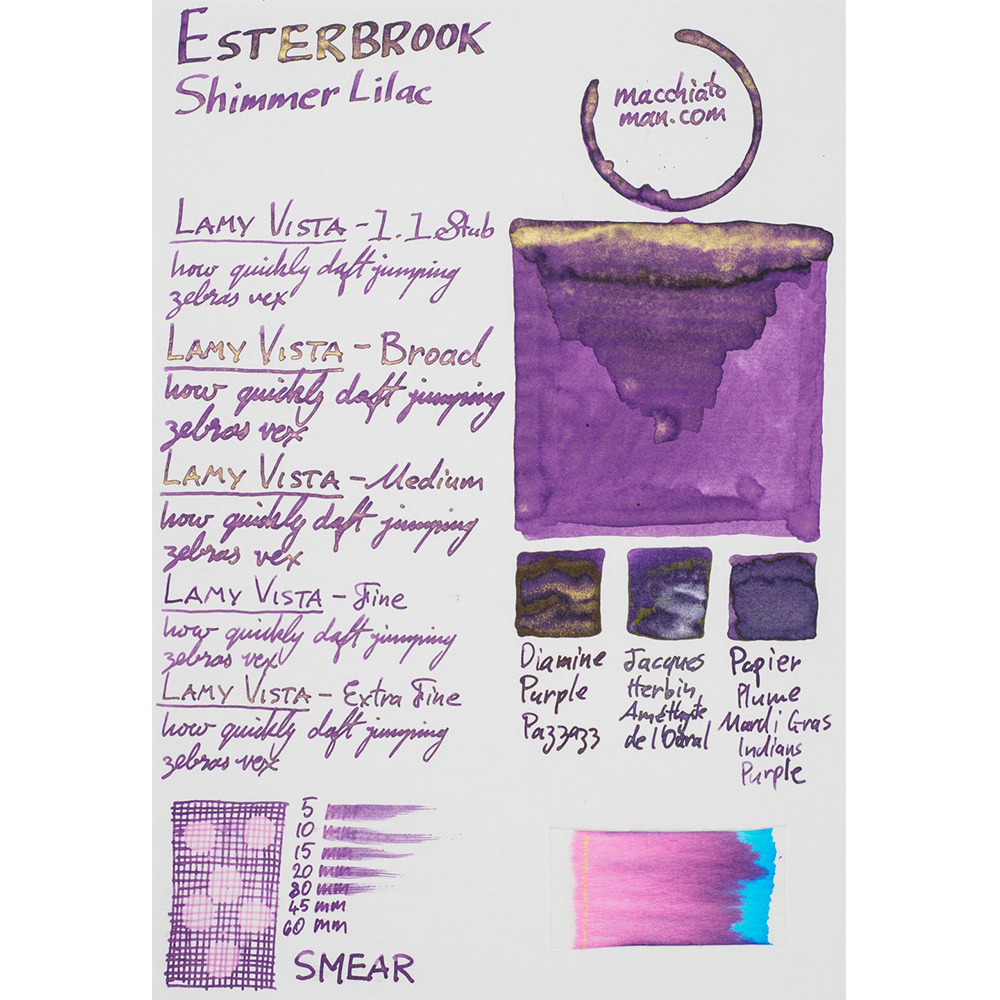 ESTERBROOK
Shimmer Lilac
macchiato
man.com
LAMY VISTA - 1.1 Stub
how quickly daft jumping
zebras vex
LAMY VISTA - Broad
how quickly daft jumping
zebras vex
LAMY VISTA - Medium
how quickly daft jumping
zebras vex
LAMY VISTA - Fine
how quickly daft jumping
zebras vex
LAMY VISTA - Extra Fine
how quickly daft jumping
zebras vex
Diamine
Purple
Pazzazz
Jacques
Herbin
Améthyste
de l'Oural
Papier
Plume
Mardi Gras
Indians
Purple
5
10 mm
15 mm
20 mm
30 mm
45 mm
60 mm
SMEAR